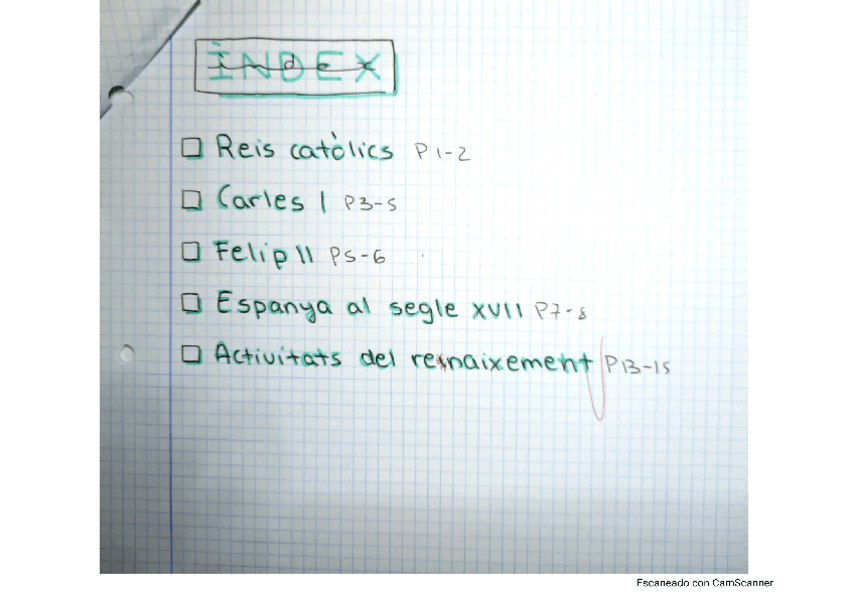 ÍNDEX
□ Reis catòlics P1-2
□ Carles I P3-5
□ Felip II P5-6
□ Espanya al segle XVII P7-8
□ Activitats del renaixement P13-15
Escaneado con CamScanner